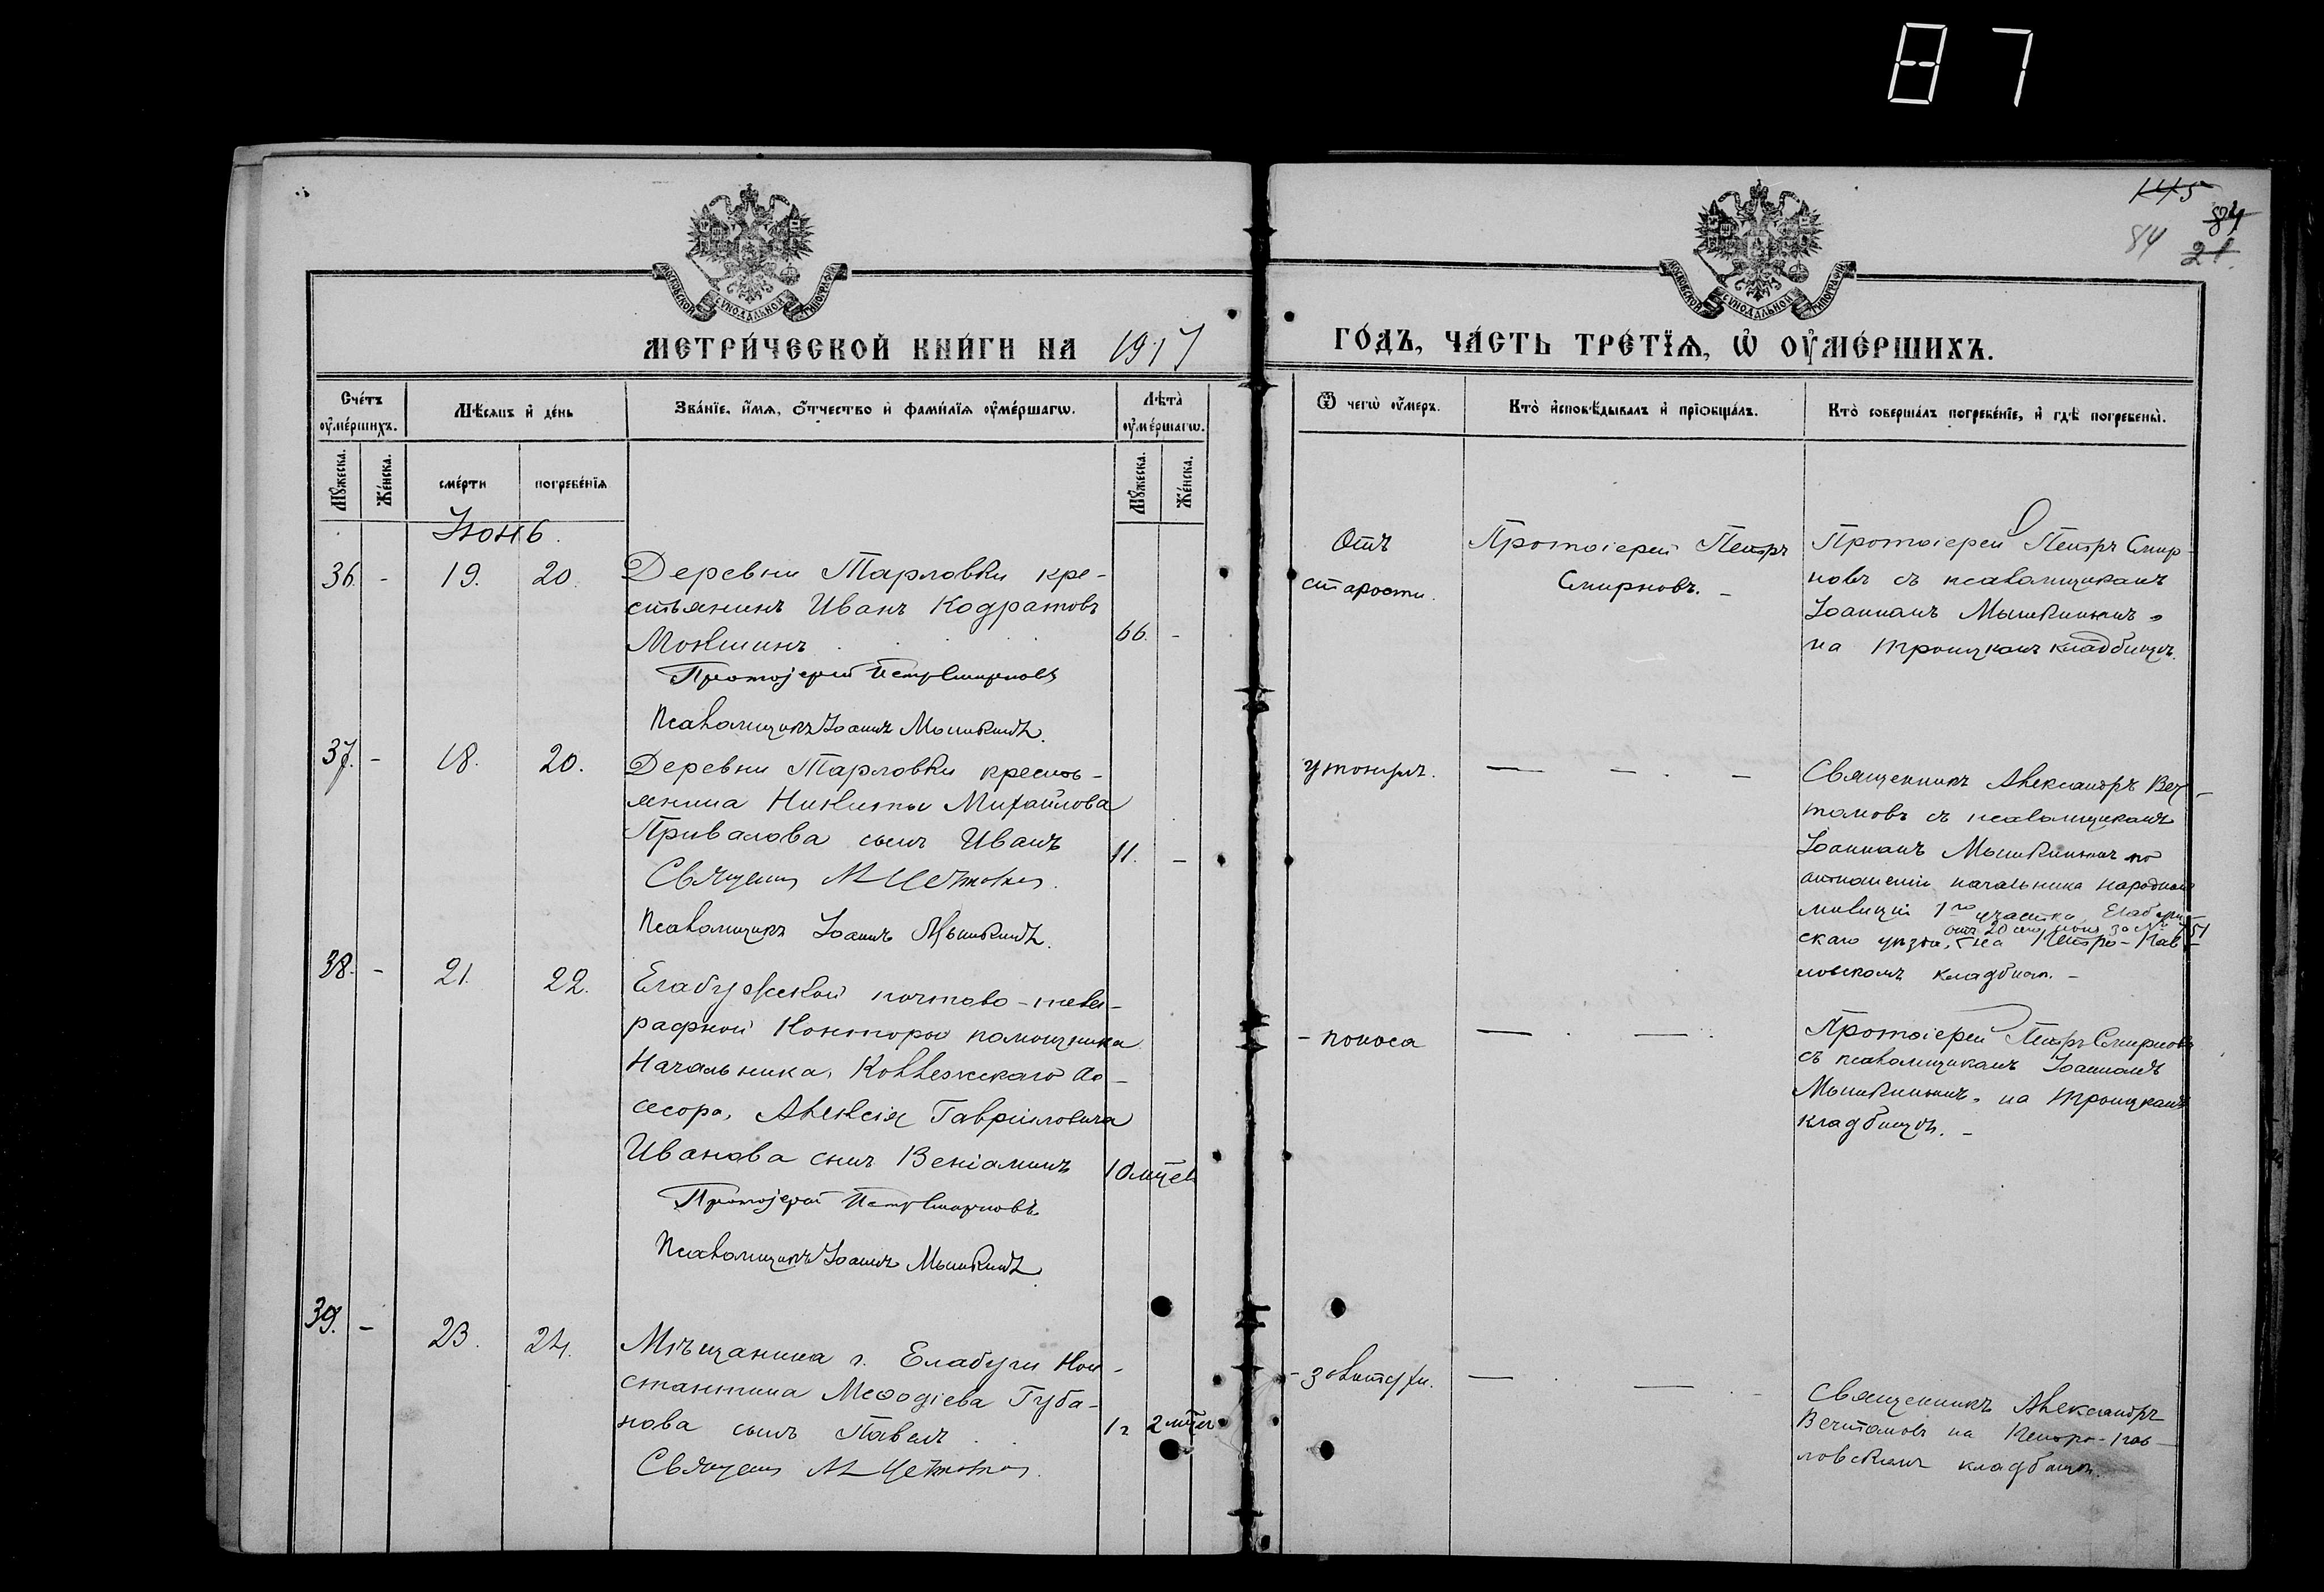 87
145
84
84
21.
МОСКОВСКОЙ СѴНОДАЛЬНОЙ ТИПОГРАФІИ
МОСКОВСКОЙ СѴНОДАЛЬНОЙ ТИПОГРАФІИ
МЕТРИ́ЧЕСКОЙ КНИ́ГИ НА 1917
ГО́ДЪ, ЧА́СТЬ ТРЕ́ТЇѦ, Ѡ҆ ОУ҆МЕ́РШИХЪ.
Сче́тъ оу҆ме́ршихъ.
Мѣ́сѧцъ и҆ де́нь
Зва́нїе, и҆́мѧ, ѻ҆́тчество и҆ фами́лїѧ оу҆ме́ршагѡ.
Лѣ́та̀ оу҆ме́ршагѡ.
Ѿ чегѡ̀ оу҆́меръ.
Кто̀ и҆сповѣ́дывалъ и҆ прїѻбща́лъ.
Кто̀ соверша́лъ погребе́нїе, и҆ гдѣ̀ погребены̀.
Мꙋ́жеска.
Же́нска.
сме́рти
погребе́нїѧ
Мꙋ́жеска.
Же́нска.
Іюнь.
36. - 19. 20.
Деревни Тарловки кре-
стьянинъ Иванъ Кодратовъ
Мокшинъ
66. -
Протоіерей Петръ Смирновъ
Псаломщикъ Іоаннъ Мышкинъ.
Отъ
старости.
Протоіерей Петръ
Смирновъ. -
Протоіерей Петръ Смир-
новъ съ псаломщикомъ
Іоанномъ Мышкинымъ,
на Троицкомъ кладбищѣ.
37. - 18. 20.
Деревни Тарловки кресть-
янина Никиты Михайлова
Привалова сынъ Иванъ
11. -
Псаломщикъ Іоаннъ Мышкинъ.
утонулъ.
Священникъ Александръ Веч-
томовъ съ псаломщикомъ
Іоанномъ Мышкинымъ по
отношенію начальника народной
милиціи 1го участка, Елабуж-
отъ 20 сего іюня за № 751
скаго уѣзда, на Петро-Пав-
ловскомъ кладбищѣ. -
38. - 21. 22.
Елабужской почтово-телег-
рафной Конторы помощника
Начальника, Коллежскаго Ас-
сесора, Алексія Гавріиловича
Иванова сынъ Веніаминъ
10 мѣсц.
Протоіерей Петръ Смирновъ
Псаломщикъ Іоаннъ Мышкинъ
- поноса
Протоіерей Петръ Смирновъ
съ псаломщикомъ Іоанномъ
Мышкинымъ, на Троицкомъ
кладбищѣ. -
39. - 23. 24.
Мѣщанина г. Елабуги Кон-
стантина Меѳодіева Губа-
нова сынъ Павелъ
1 г. 2 мѣс.
- золотухи.
Священникъ Александръ
Вечтомовъ на Петро-Пав-
ловскомъ кладбищѣ.